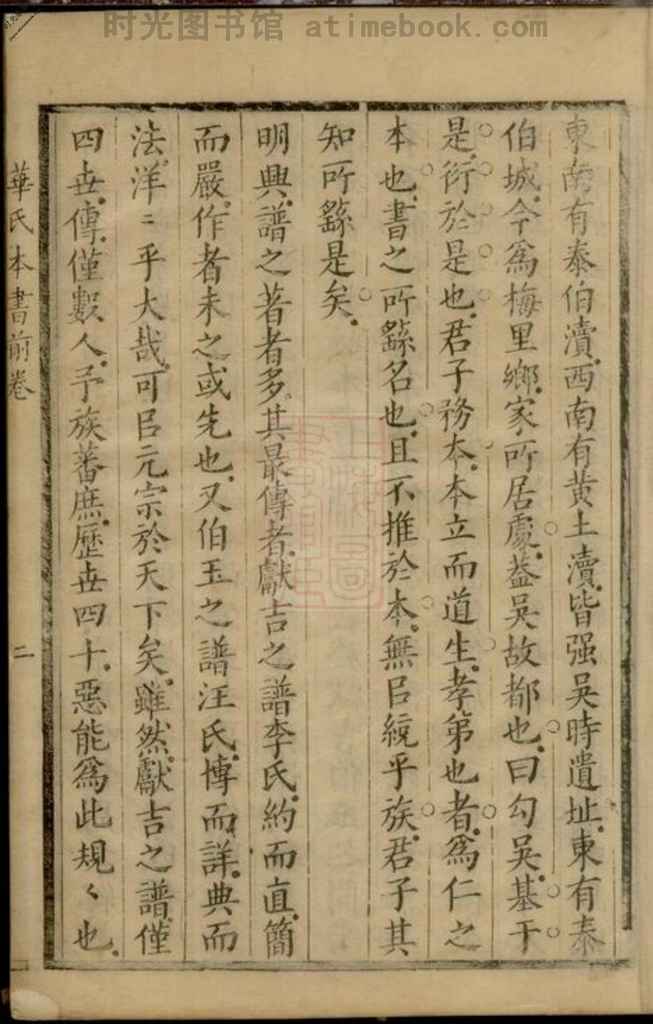 时光图书馆 atimebook.com
東南有泰伯瀆西南有黄土瀆皆强吳時遺址東有泰
伯城今爲梅里鄉家所居處葢吳故都也曰勾吳基于
是衍於是也君子務本本立而道生孝弟也者爲仁之
本也書之所繇名也且不推於本無㠯統乎族君子其
知所繇是矣
明興譜之著者多其最傳者獻吉之譜李氏約而直簡
而嚴作者未之或先也又伯玉之譜汪氏博而詳典而
法洋〻乎大哉可㠯元宗於天下矣雖然獻吉之譜僅
四世傳僅數人予族蕃庶歷世四十惡能爲此規〻也
華氏本書前卷 二